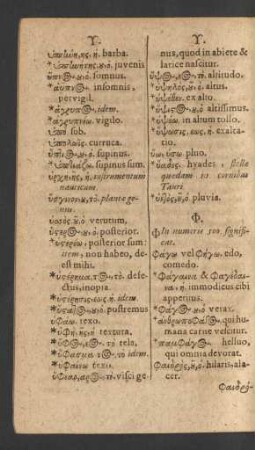 Υ.
ὑπήνη, ης, ἡ. barba.
ὁ. juvenis
ὕπνος, ου, ὁ. somnus.
*ἄυπνος. insomnis,
pervigil.
idem.
*ἀγρυπνέω. vigilo.
ὑπό sub.
curruca.
ὕπτιος, ου, ὁ. supinus.
*ὑπτιάζω. supinus sum.
ἡ. instrumentum
nauticum.
τό. planta ge-
nus.
ὑσσός, οῦ, ὁ. verutum,
ὕστερος, ου, ὁ. posterior.
*ὑστερέω, posterior sum:
item, non habeo, de-
est mihi.
*ὑστέρημα, τος, τό. defe-
ctus, inopia.
*ὑστέρησις, εως, ἡ. idem.
ὁ. postremus
ὑφάω. texo.
*ὑφή, ῆς, ἡ. textura.
*ὕφος, εος, τό. tela.
*ὕφασμα, τος, τό. idem.
*ὑφαίνω. texo.
τό. visci ge-
Υ.
nus, quod in abiete &
larice nascitur.
ὕψος, εος, τό. altitudo.
*ὑψηλός, οῦ, ὁ. altus.
ex alto.
ὁ. altissimus.
*ὑψόω. in altum tollo.
*ὕψωσις, εως, ἡ. exalta-
tio.
ὕω, ὕσω. pluo.
*ὑάδες. hyades, stellæ
quædam in cornibus
Tauri.
*ὑετός, οῦ, ὁ. pluvia.
Φ.
Φ In numeris 500. signifi-
cat.
Φάγω vel Φήγω. edo,
comedo.
*Φάγαινα & Φαγέδαι-
να, ἡ. immodicus cibi
appetitus.
*Φάγος, ου, ὁ. vorax.
*ἀνθρωποφάγος. qui hu-
mana carne vescitur.
*παμφάγος. helluo,
qui omnia devorat.
Φαιδρός, οῦ, ὁ. hilaris, ala-
cer.
Φαιδρό-